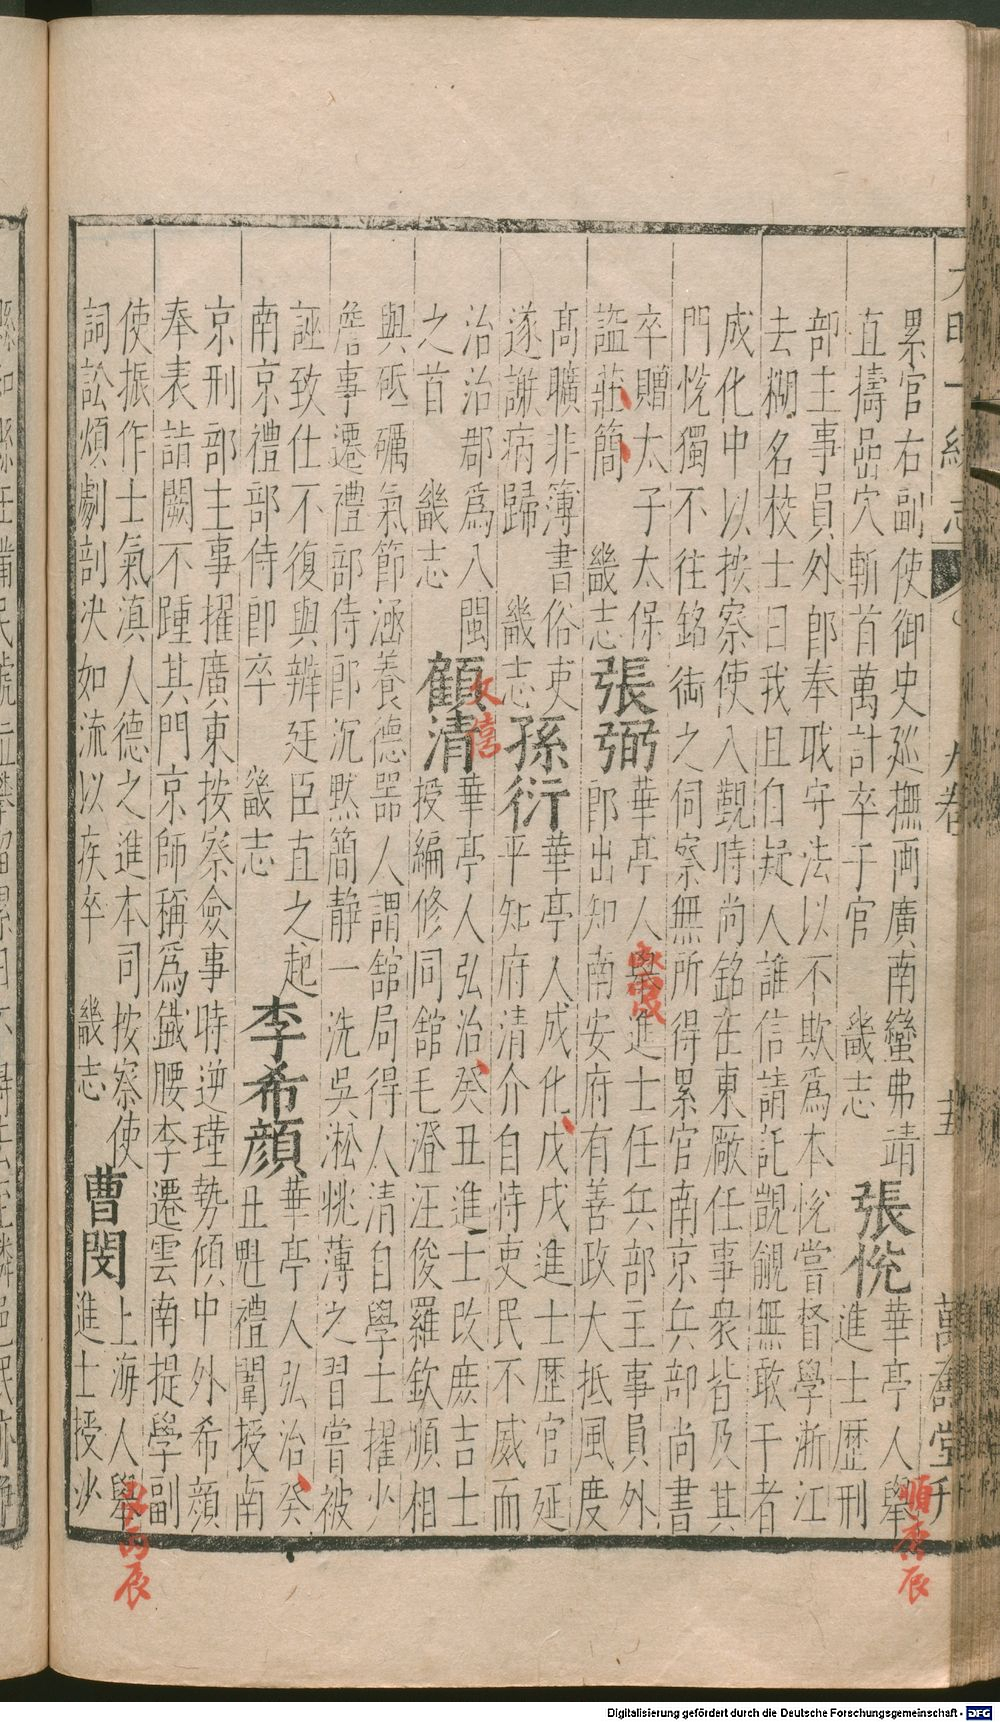 大明一統志 卷九 十五 萬壽堂刊
累官右副使御史廵撫両廣南蠻弗靖
直擣嵓穴斬首萬計卒于官 畿志
張悅
華亭人舉
順庚辰
進士歷刑
部主事員外郎奉職守法以不欺爲本悅嘗督學浙江
去糊名校士曰我且自疑人誰信請託覬覦無敢干者
成化中以按察使入覲時尚銘在東廠任事衆皆及其
門悅獨不往銘銜之伺察無所得累官南京兵部尚書
卒贈太子太保
諡莊簡 畿志
張弼
華亭人舉進士任兵部主事員外
郎出知南安府有善政大抵風度
髙曠非簿書俗吏
遂謝病歸 畿志
孫衍
華亭人成化戊戌進士歷官延
平知府清介自恃吏民不威而
治治郡爲八閩
之首 畿志
顧清
文僖
華亭人弘治癸丑進士改庶吉士
授編修同舘毛澄汪俊羅欽順相
與砥礪氣節涵養德器人謂舘局得人清自學士擢少
詹事遷禮部侍郎沉黙簡静一洗吳淞恌薄之習嘗被
誣致仕不復與辨廷臣直之起
南京禮部侍郎卒 畿志
李希顏
華亭人弘治癸
丑魁禮闈授南
京刑部主事擢廣東按察僉事時逆瑾勢傾中外希顏
奉表詣闕不踵其門京師稱爲鐵腰李遷雲南提學副
使振作士氣滇人德之進本司按察使
詞訟煩劇剖决如流以疾卒 畿志
曹閔
上海人舉
弘丙辰
進士授沙
Digitalisierung gefördert durch die Deutsche Forschungsgemeinschaft - DFG